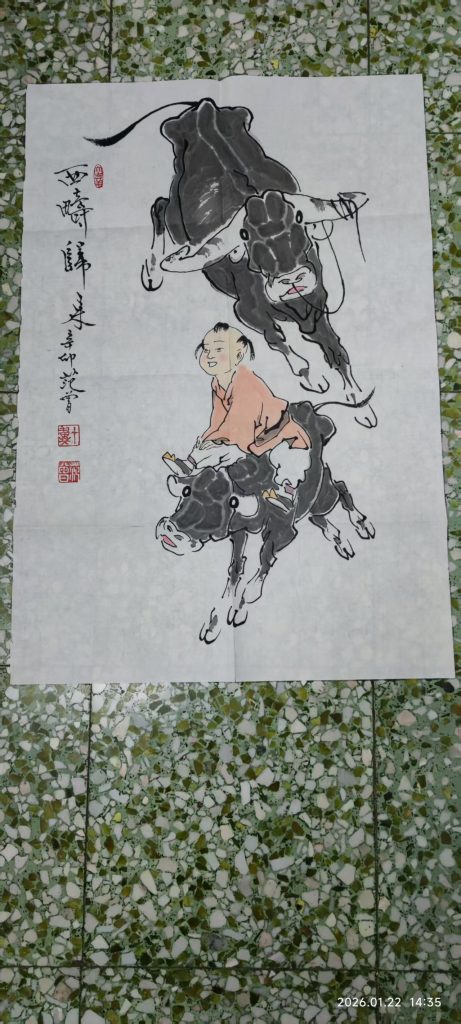 西疇歸来 辛卯 范曾
2026.01.22 14:35